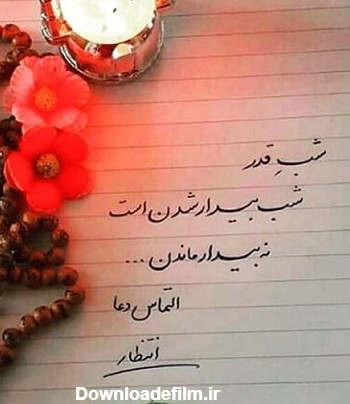 شبِ قدر
شب بیدار شدن است
نه بیدار ماندن ...
التماس دعا
انتظار
Downloadefilm.ir